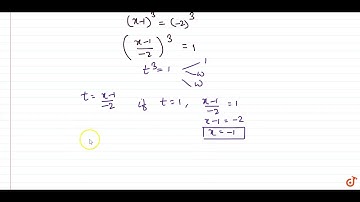 (x-1)³ = (-2)³
(x-1/-2)³ = 1
t³ = 1 1
ω
ω
t = x-1/-2 if t = 1, x-1/-2 = 1
x-1 = -2
x = -1